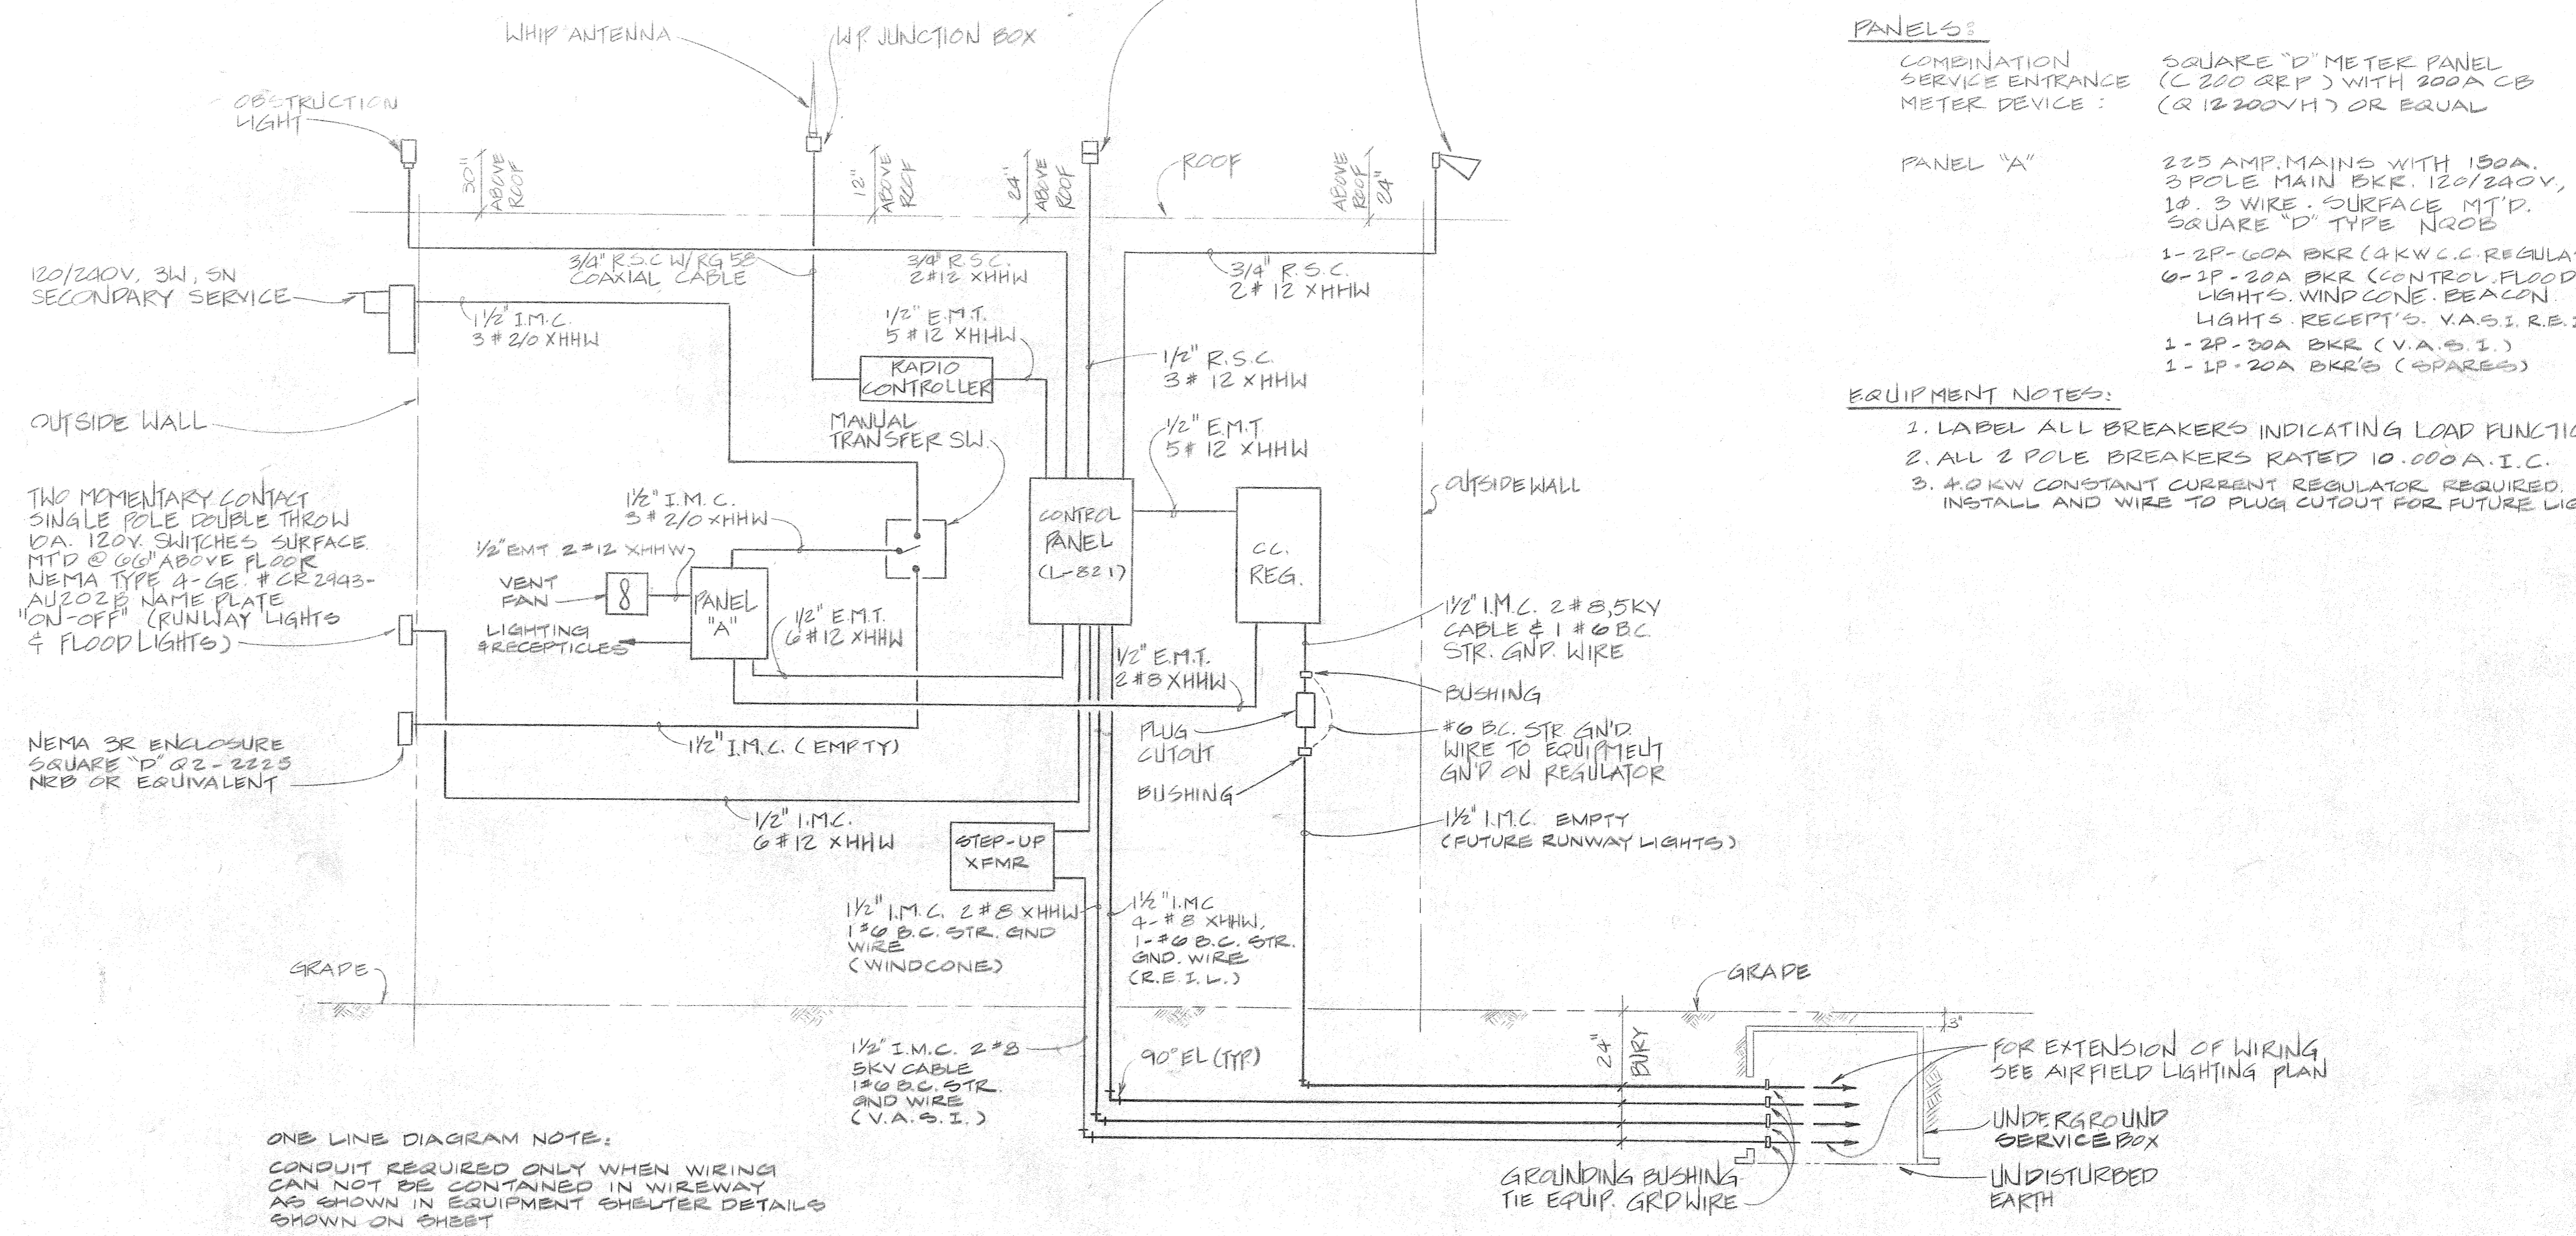 WHIP ANTENNA
W.P. JUNCTION BOX
OBSTRUCTION
LIGHT
30"
ABOVE
ROOF
12"
ABOVE
ROOF
24"
ABOVE
ROOF
ROOF
ABOVE
ROOF
24"
120/240V, 3W, SN
SECONDARY SERVICE
1½" I.M.C.
3 # 2/0 XHHW
3/4" R.S.C W/RG 58
COAXIAL CABLE
3/4" R.S.C.
2 #12 XHHW
3/4" R.S.C.
2 # 12 XHHW
1/2" E.M.T.
5 # 12 XHHW
RADIO
CONTROLLER
1/2" R.S.C.
3 # 12 XHHW
OUTSIDE WALL
MANUAL
TRANSFER SW.
1/2" E.M.T.
5# 12 XHHW
OUTSIDE WALL
TWO MOMENTARY CONTACT
SINGLE POLE DOUBLE THROW
10A. 120V. SWITCHES SURFACE
MT'D @ 66" ABOVE FLOOR
NEMA TYPE 4-GE. # CR2943-
AU202B NAME PLATE
"ON-OFF" (RUNWAY LIGHTS
& FLOOD LIGHTS)
1½" I.M.C.
3 # 2/0 XHHW
1/2" EMT 2 #12 XHHW
VENT
FAN
8
PANEL
"A"
LIGHTING
& RECEPTICLES
CONTROL
PANEL
(L-821)
C.C.
REG.
1/2" E.M.T.
6 #12 XHHW
1/2" E.M.T.
2 #8 XHHW
1½" I.M.C. 2 # 8, 5KV
CABLE & 1 # 6 B.C.
STR. GND. WIRE
BUSHING
PLUG
CUTOUT
#6 B.C. STR GN'D.
WIRE TO EQUIPMENT
GN'D ON REGULATOR
BUSHING
NEMA 3R ENCLOSURE
SQUARE "D" Q2-2225
NRB OR EQUIVALENT
1½" I.M.C. (EMPTY)
1/2" I.M.C.
6 # 12 XHHW
1½" I.M.C. EMPTY
(FUTURE RUNWAY LIGHTS)
STEP-UP
XFMR
1½" I.M.C. 2 # 8 XHHW
1 #6 B.C. STR. GND
WIRE
(WINDCONE)
1½" I.M.C
4-# 8 XHHW,
1-#6 B.C. STR.
GND. WIRE
(R.E.I.L.)
GRADE
GRADE
1½" I.M.C. 2 #8
5KV CABLE
1#6 B.C. STR.
GND WIRE
(V.A.S.I.)
90° EL (TYP.)
24"
BURY
3"
FOR EXTENSION OF WIRING
SEE AIRFIELD LIGHTING PLAN
UNDERGROUND
SERVICE BOX
UNDISTURBED
EARTH
GROUNDING BUSHING
TIE EQUIP. GR'D WIRE
ONE LINE DIAGRAM NOTE:
CONDUIT REQUIRED ONLY WHEN WIRING
CAN NOT BE CONTAINED IN WIREWAY
AS SHOWN IN EQUIPMENT SHELTER DETAILS
SHOWN ON SHEET
PANELS:
COMBINATION
SERVICE ENTRANCE
METER DEVICE :
SQUARE "D" METER PANEL
(C 200 QRP) WITH 200A CB
(Q 12200VH) OR EQUAL
PANEL "A"
225 AMP. MAINS WITH 150A.
3 POLE MAIN BKR. 120/240V,
1Φ. 3 WIRE . SURFACE MT'D.
SQUARE "D" TYPE NQOB
1-2P-60A BKR (4 KW C.C. REGULA
6-1P-20A BKR (CONTROL. FLOOD
LIGHTS. WINDCONE. BEACON.
LIGHTS. RECEPT'S. V.A.S.I. R.E.I
1-2P-30A BKR (V.A.S.I.)
1-1P-20A BKR'S (SPARES)
EQUIPMENT NOTES:
1. LABEL ALL BREAKERS INDICATING LOAD FUNCTIO
2. ALL 2 POLE BREAKERS RATED 10.000 A.I.C.
3. 4.0 KW CONSTANT CURRENT REGULATOR REQUIRED.
INSTALL AND WIRE TO PLUG CUTOUT FOR FUTURE LIG